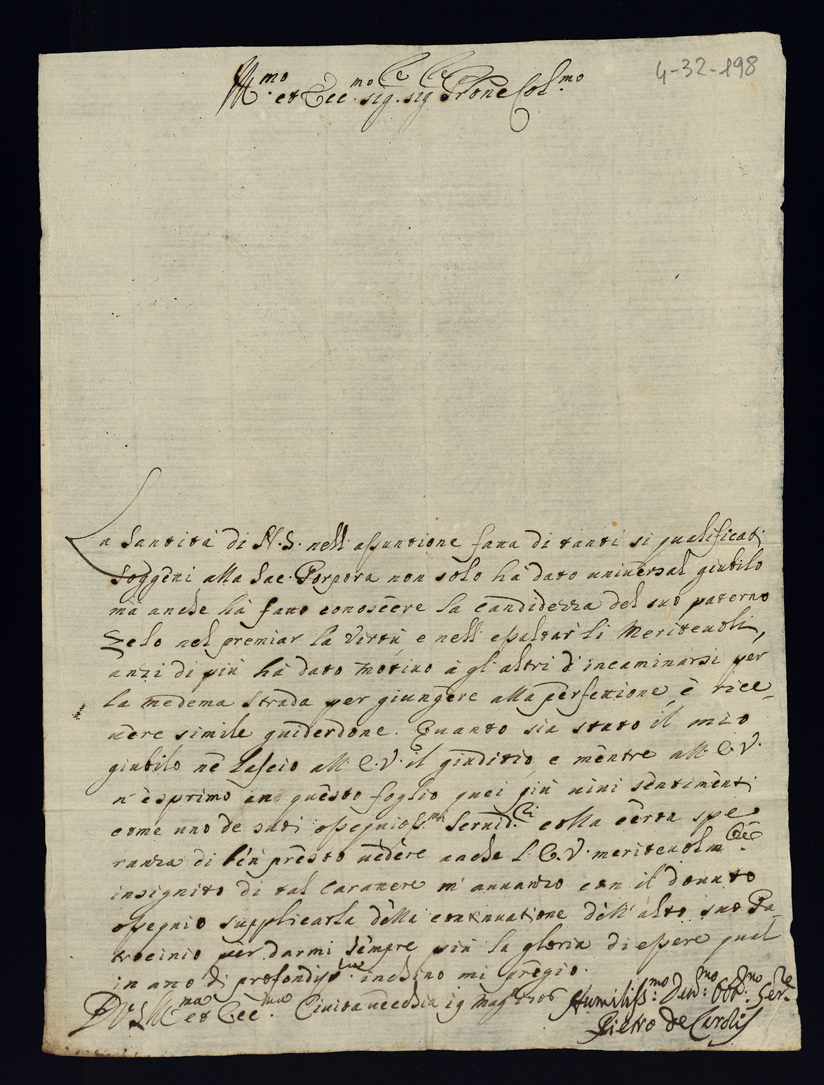 4-32-198
Ill.mo et Ecc.mo Sig. Sig. Prone Col.mo
La Santità di N. S. nell'assuntione fatta di tanti si qualificati
Soggetti alla Sac. Porpora non solo hà dato universal giubilo
ma anche hà fatto conoscere la candidezza del suo paterno
Zelo nel premiar la Virtù e nell'esaltar li Meritevoli,
anzi di più hà dato motivo à gl'altri d'incaminarsi per
la medema strada per giungere alla perfettione, è rice-
vere simile guiderdone. Quanto sia stato il mio
giubilo nè lascio all'E.V. il giuditio, e mentre all'E.V.
n'esprimo in questo foglio quei più vivi sentimenti
come uno de suoi ossequios.mi Servid.ri colla certa spe
ranza di ben presto vedere anche l'E.V. meritevolm.te
insignito di tal Carattere m'avvanzo con il dovuto
ossequio supplicarla della continuatione dell'alto suo Pa-
trocinio per darmi sempre più la gloria di essere qual
in atto di profondiss.mo inchino mi pregio.
D V.S. Ill.ma et Ecc.ma Civita vecchia 19 mag.o 1706 Humiliss.mo Dev.mo Obb.mo Ser.re
Pietro de Carolis